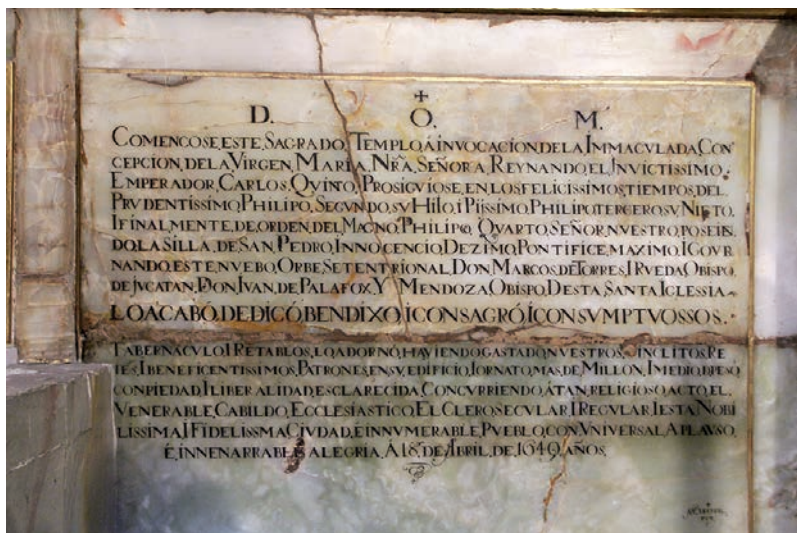 D. O. M.
COMENCOSE, ESTE, SAGRADO, TEMPLO, Á INVOCACION, DE LA IMMACVLADA, CON
CEPCION, DE LA VIRGEN, MARIA, NRA, SEÑORA, REYNANDO, EL INVICTISSIMO,
EMPERADOR, CARLOS, QVINTO, PROSIGVIOSE, EN LOS FELICISSIMOS, TIEMPOS, DEL
PRVDENTISSIMO, PHILIPO, SEGVNDO, SV HILO, I PIJSSIMO, PHILIPO TERCERO, SV NIETO,
I FINALMENTE, DE, ORDEN, DEL MAGNO, PHILIPO, QVARTO, SEÑOR, NVESTRO, POSEIN
DO, LA SILLA, DE SAN, PEDRO, INNOCENCIO, DEZIMO, PONTIFICE, MAXIMO, I GOVR
NANDO, ESTE, NVEBO, ORBE, SETENTRIONAL, DON MARCOS, DE TORRES, I RVEDA, OBISPO,
DE JVCATAN, DON IVAN, DE PALAFOX, Y MENDOZA, OBISPO, DESTA, SANTA IGLESSIA
LO ACABÓ, DEDICÓ, BENDIXO, I CONSAGRÓ, I CON SVMPTVOSSOS.
TABERNACVLO I RETABLOS, LO ADORNÓ, HAVIENDO GASTADO NVESTROS, INCLITOS, RE
IES, I BENEFICENTISSIMOS, PATRONES, EN SV, EDIFICIO, I ORNATO, MAS, DE MILLON, I MEDIO, D PESO
CON PIEDAD, I LIBERALIDAD, ESCLARECIDA, CONCVRRIENDO, Á TAN, RELIGIOSO, ACTO, EL
VENERABLE, CABILDO, ECCLESIASTICO, EL CLERO, SECVLAR, I REGVLAR, I ESTA NOBI
LISSIMA, I FIDELISSMA, CIVDAD, É INNVMERABLE, PVEBLO, CON VNIVERSAL, APLAVSO,
É, INNENARRABLE ALEGRIA, Á 18, DE ABRIL, DE 1649, AÑOS,